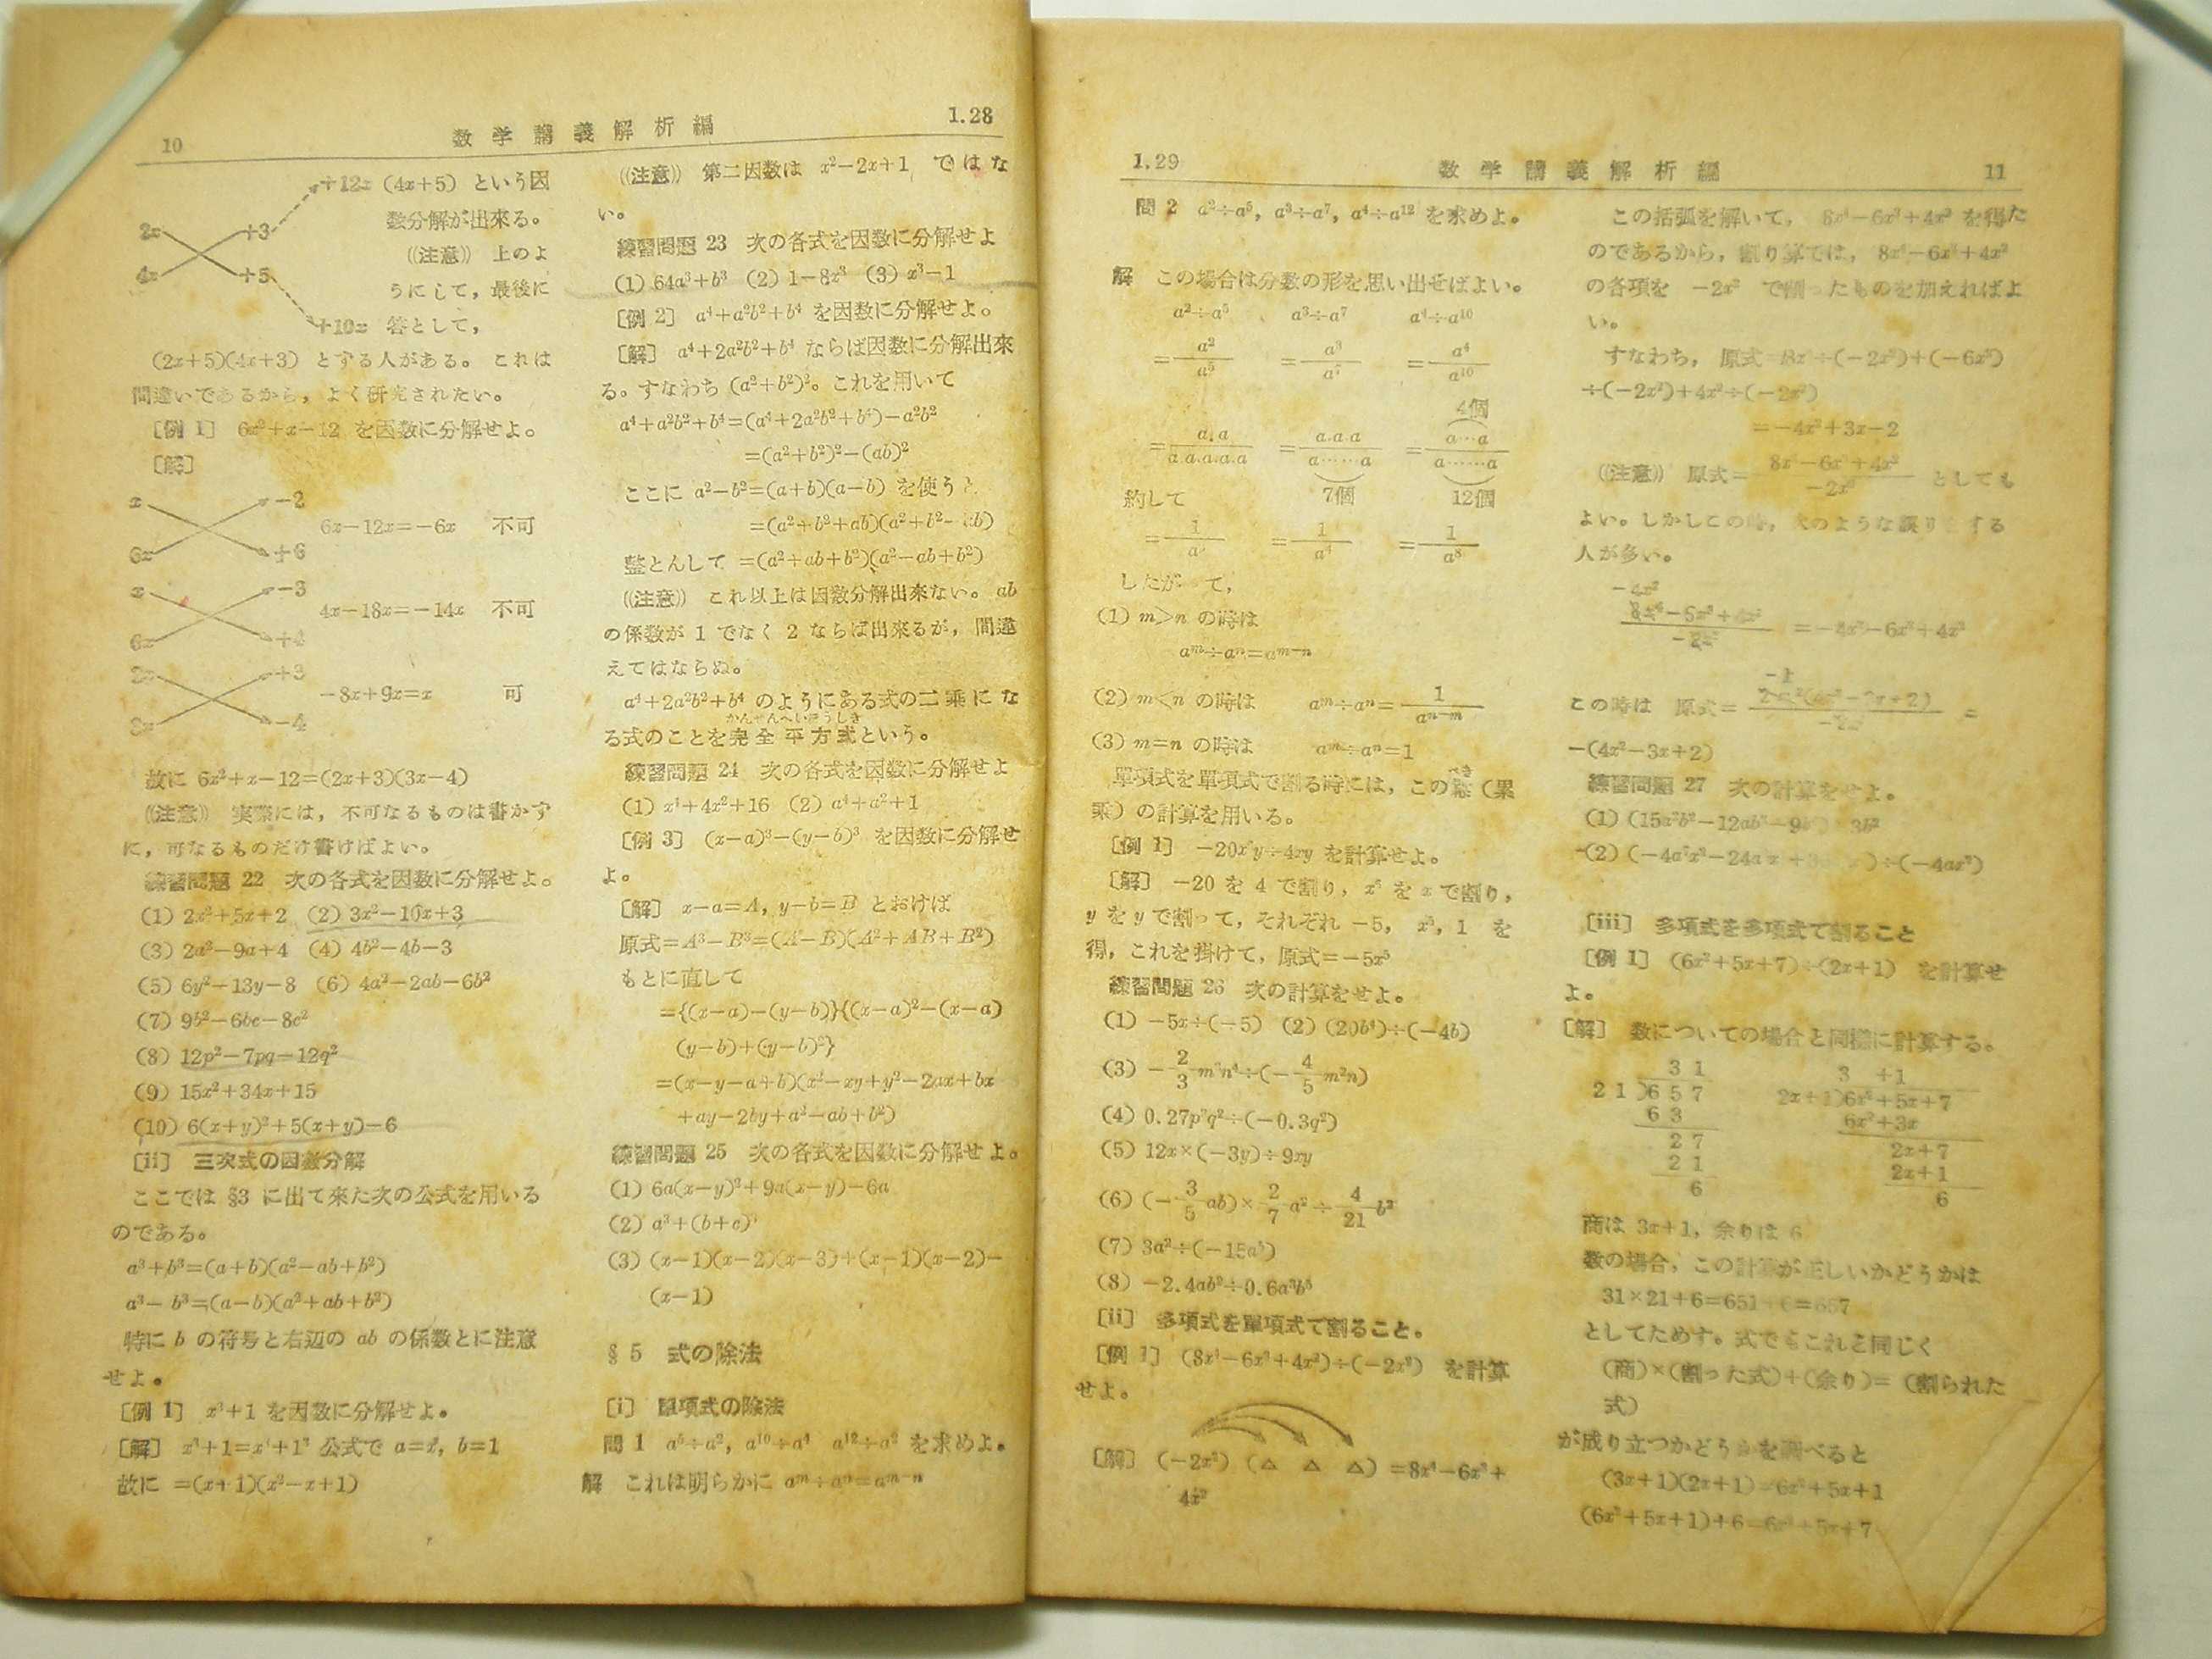 10 数学講義解析編 1.28
+12x (4x+5) という因
数分解が出来る。
2x +3
((注意)) 上のよ
4x +5
うにして，最後に
+10x 答として，
(2x+5)(4x+3) とする人がある。これは
間違いであるから，よく研究されたい。
〔例 1〕 6x²+x−12 を因数に分解せよ。
〔解〕
x −2
6x−12x=−6x 不可
6x +6
x −3
4x−18x=−14x 不可
6x +4
2x +3
−8x+9x=x 可
3x −4
故に 6x²+x−12=(2x+3)(3x−4)
((注意)) 実際には，不可なるものは書かず
に，可なるものだけ書けばよい。
練習問題 22 次の各式を因数に分解せよ。
(1) 2x²+5x+2 (2) 3x²−10x+3
(3) 2a²−9a+4 (4) 4b²−4b−3
(5) 6y²−13y−8 (6) 4a²−2ab−6b²
(7) 9b²−6bc−8c²
(8) 12p²−7pq−12q²
(9) 15x²+34x+15
(10) 6(x+y)²+5(x+y)−6
〔ii〕 三次式の因数分解
ここでは §3 に出て来た次の公式を用いる
のである。
a³+b³=(a+b)(a²−ab+b²)
a³−b³=(a−b)(a²+ab+b²)
特に b の符号と右辺の ab の係数とに注意
せよ。
〔例 1〕 x³+1 を因数に分解せよ。
〔解〕 x³+1=x³+1³ 公式で a=x, b=1
故に =(x+1)(x²−x+1)
((注意)) 第二因数は x²−2x+1 ではな
い。
練習問題 23 次の各式を因数に分解せよ
(1) 64a³+b³ (2) 1−8x³ (3) x³−1
〔例 2〕 a⁴+a²b²+b⁴ を因数に分解せよ。
〔解〕 a⁴+2a²b²+b⁴ ならば因数に分解出来
る。すなわち (a²+b²)²。これを用いて
a⁴+a²b²+b⁴=(a⁴+2a²b²+b⁴)−a²b²
=(a²+b²)²−(ab)²
ここに a²−b²=(a+b)(a−b) を使うと
=(a²+b²+ab)(a²+b²−ab)
整とんして =(a²+ab+b²)(a²−ab+b²)
((注意)) これ以上は因数分解出来ない。ab
の係数が 1 でなく 2 ならば出来るが，間違
えてはならぬ。
a⁴+2a²b²+b⁴ のようにある式の二乗にな
かんぜんへいほうしき
る式のことを完全平方式という。
練習問題 24 次の各式を因数に分解せよ
(1) x⁴+4x²+16 (2) a⁴+a²+1
〔例 3〕 (x−a)³−(y−b)³ を因数に分解せ
よ。
〔解〕 x−a=A, y−b=B とおけば
原式=A³−B³=(A−B)(A²+AB+B²)
もとに直して
={(x−a)−(y−b)}{(x−a)²−(x−a)
(y−b)+(y−b)²}
=(x−y−a+b)(x²−xy+y²−2ax+bx
+ay−2by+a²−ab+b²)
練習問題 25 次の各式を因数に分解せよ。
(1) 6a(x−y)²+9a(x−y)−6a
(2) a³+(b+c)³
(3) (x−1)(x−2)(x−3)+(x−1)(x−2)−
(x−1)
§ 5 式の除法
〔i〕 單項式の除法
問 1 a⁵÷a², a¹⁰÷a⁴ a¹²÷a⁹ を求めよ。
解 これは明らかに aᵐ÷aⁿ=aᵐ⁻ⁿ
1.29 数学講義解析編 11
問 2 a²÷a⁵, a³÷a⁷, a⁴÷a¹² を求めよ。
解 この場合は分数の形を思い出せばよい。
a²÷a⁵ a³÷a⁷ a⁴÷a¹⁰
=a²/a⁵ =a³/a⁷ =a⁴/a¹⁰
4個
=a.a/a.a.a.a.a =a.a.a/a……a =a…a/a……a
約して 7個 12個
=1/a³ =1/a⁴ =1/a⁸
したがって，
(1) m>n の時は
aᵐ÷aⁿ=aᵐ⁻ⁿ
(2) m<n の時は aᵐ÷aⁿ=1/aⁿ⁻ᵐ
(3) m=n の時は aᵐ÷aⁿ=1
べき
單項式を單項式で割る時には，この冪（累
乘）の計算を用いる。
〔例 1〕 −20x⁶y÷4xy を計算せよ。
〔解〕 −20 を 4 で割り，x⁶ を x で割り，
y を y で割って，それぞれ −5, x⁵, 1 を
得，これを掛けて，原式=−5x⁵
練習問題 26 次の計算をせよ。
(1) −5x÷(−5) (2) (20b⁴)÷(−4b)
(3) −2/3 m³n⁴÷(−4/5 m²n)
(4) 0.27p²q²÷(−0.3q²)
(5) 12x×(−3y)÷9xy
(6) (−3/5 ab)×2/7 a²÷4/21 b²
(7) 3a²÷(−15a⁵)
(8) −2.4ab²÷0.6a³b⁵
〔ii〕 多項式を單項式で割ること。
〔例 1〕 (8x⁴−6x³+4x²)÷(−2x²) を計算
せよ。
〔解〕 (−2x²) (△ △ △) =8x⁴−6x³+
4x²
この括弧を解いて， 8x⁴−6x³+4x² を得た
のであるから，割り算では， 8x⁴−6x³+4x²
の各項を −2x² で割ったものを加えればよ
い。
すなわち， 原式=8x⁴÷(−2x²)+(−6x³)
÷(−2x²)+4x²÷(−2x²)
=−4x²+3x−2
((注意)) 原式=8x⁴−6x³+4x²/−2x² としても
よい。しかしこの時，次のような誤りをする
人が多い。
−4x²
8x⁴−6x³+4x²/−2x² =−4x²−6x³+4x²
−1
この時は 原式=2x²(4x²−3x+2)/−2x² =
−(4x²−3x+2)
練習問題 27 次の計算をせよ。
(1) (15a²b²−12ab³−9b 3b²
(2) (−4a²x²−24a )÷(−4ax²)
〔iii〕 多項式を多項式で割ること
〔例 1〕 (6x²+5x+7)÷(2x+1) を計算せ
よ。
〔解〕 数についての場合と同樣に計算する。
3 1 3 +1
2 1 )6 5 7 2x+1)6x²+5x+7
6 3 6x²+3x
2 7 2x+7
2 1 2x+1
6 6
商は 3x+1，余りは 6
数の場合，この計算が正しいかどうかは
31×21+6=651+6=657
としてためす。式でもこれと同じく
(商)×(割った式)+(余り)=（割られた
式）
が成り立つかどうかを調べると
(3x+1)(2x+1)=6x²+5x+1
(6x²+5x+1)+6=6x²+5x+7